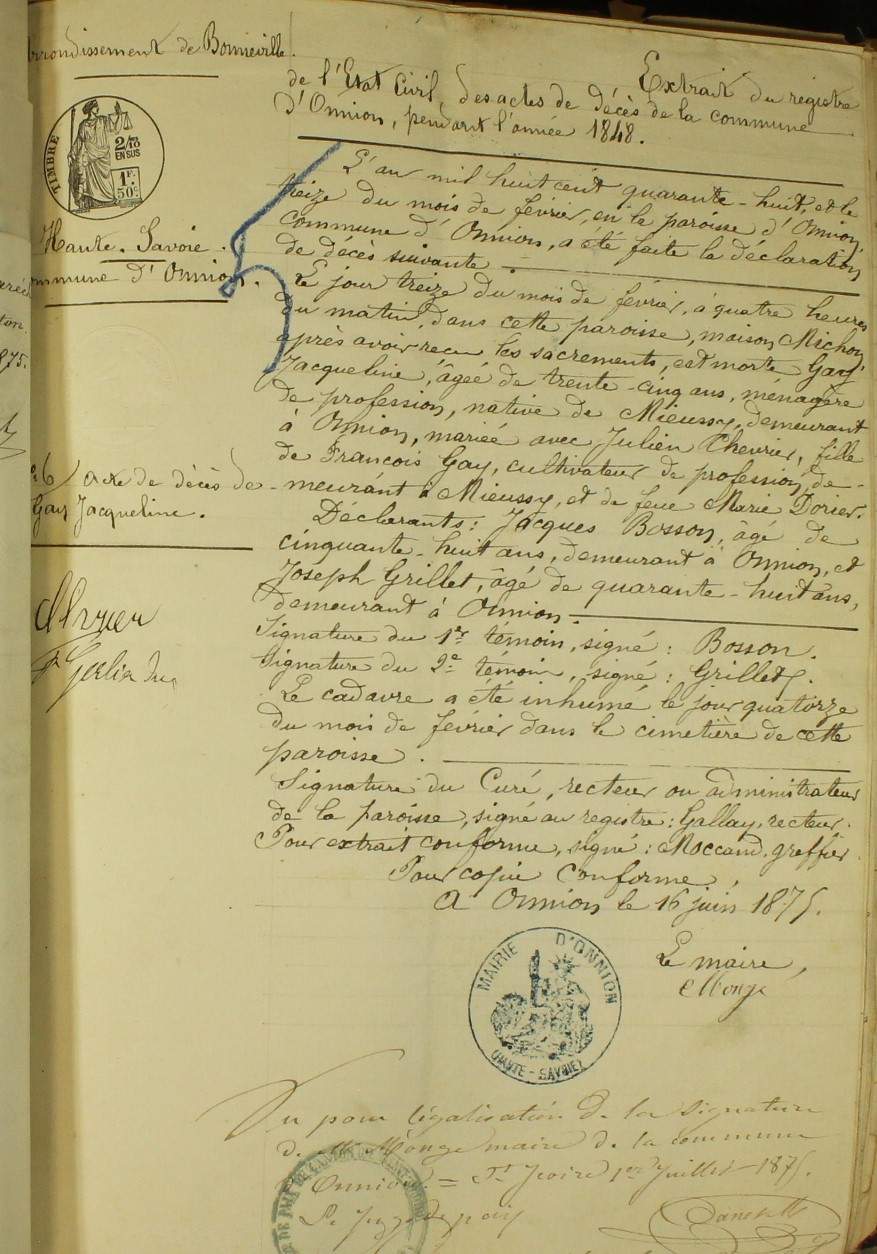 arrondissement de Bonneville.
TIMBRE
2/10
EN SUS
1F.
50c
Haute-Savoie.
commune d'Onnion.
875.
6 acte de décès de
Gay Jacqueline.
Extrait du registre
de l'Etat Civil, des actes de décès de la commune
d'Onnion, pendant l'année 1848.
L'an mil huit cent quarante-huit, et le
treize du mois de février, en la paroisse d'Onnion,
commune d'Onnion, a été faite la déclaration
de décès suivante.
Le jour treize du mois de février, à quatre heures
du matin, dans cette paroisse, maison Michon,
après avoir reçu les sacrements, est morte Gay,
Jacqueline, âgée de trente-cinq ans, ménagère
de profession, native de Mieussy, demeurant
à Onnion, mariée avec Julien Chevrier, fille
de François Gay, cultivateur de profession, de-
meurant à Mieussy, et de feue Marie Dorier.
Déclarants: Jacques Bosson, âgé de
cinquante-huit ans, demeurant à Onnion, et
Joseph Grillet, âgé de quarante-huit ans,
demeurant à Onnion.
Signature du 1er témoin, signé: Bosson.
Signature du 2e témoin, signé: Grillet.
Le cadavre a été inhumé le jour quatorze
du mois de février dans le cimetière de cette
paroisse.
Signature du Curé, recteur ou administrateur
de la paroisse, signé au registre: Gallay, recteur.
Pour extrait conforme, signé: Moccand, greffier.
Pour copie conforme,
A Onnion le 16 juin 1875.
Le maire,
Monge
MAIRIE D'ONNION
(HAUTE-SAVOIE)
Vu pour légalisation de la signature
de M. Monge maire de la commune
d'Onnion = St Jeoire 1er Juillet 1875.
Le Juge de paix